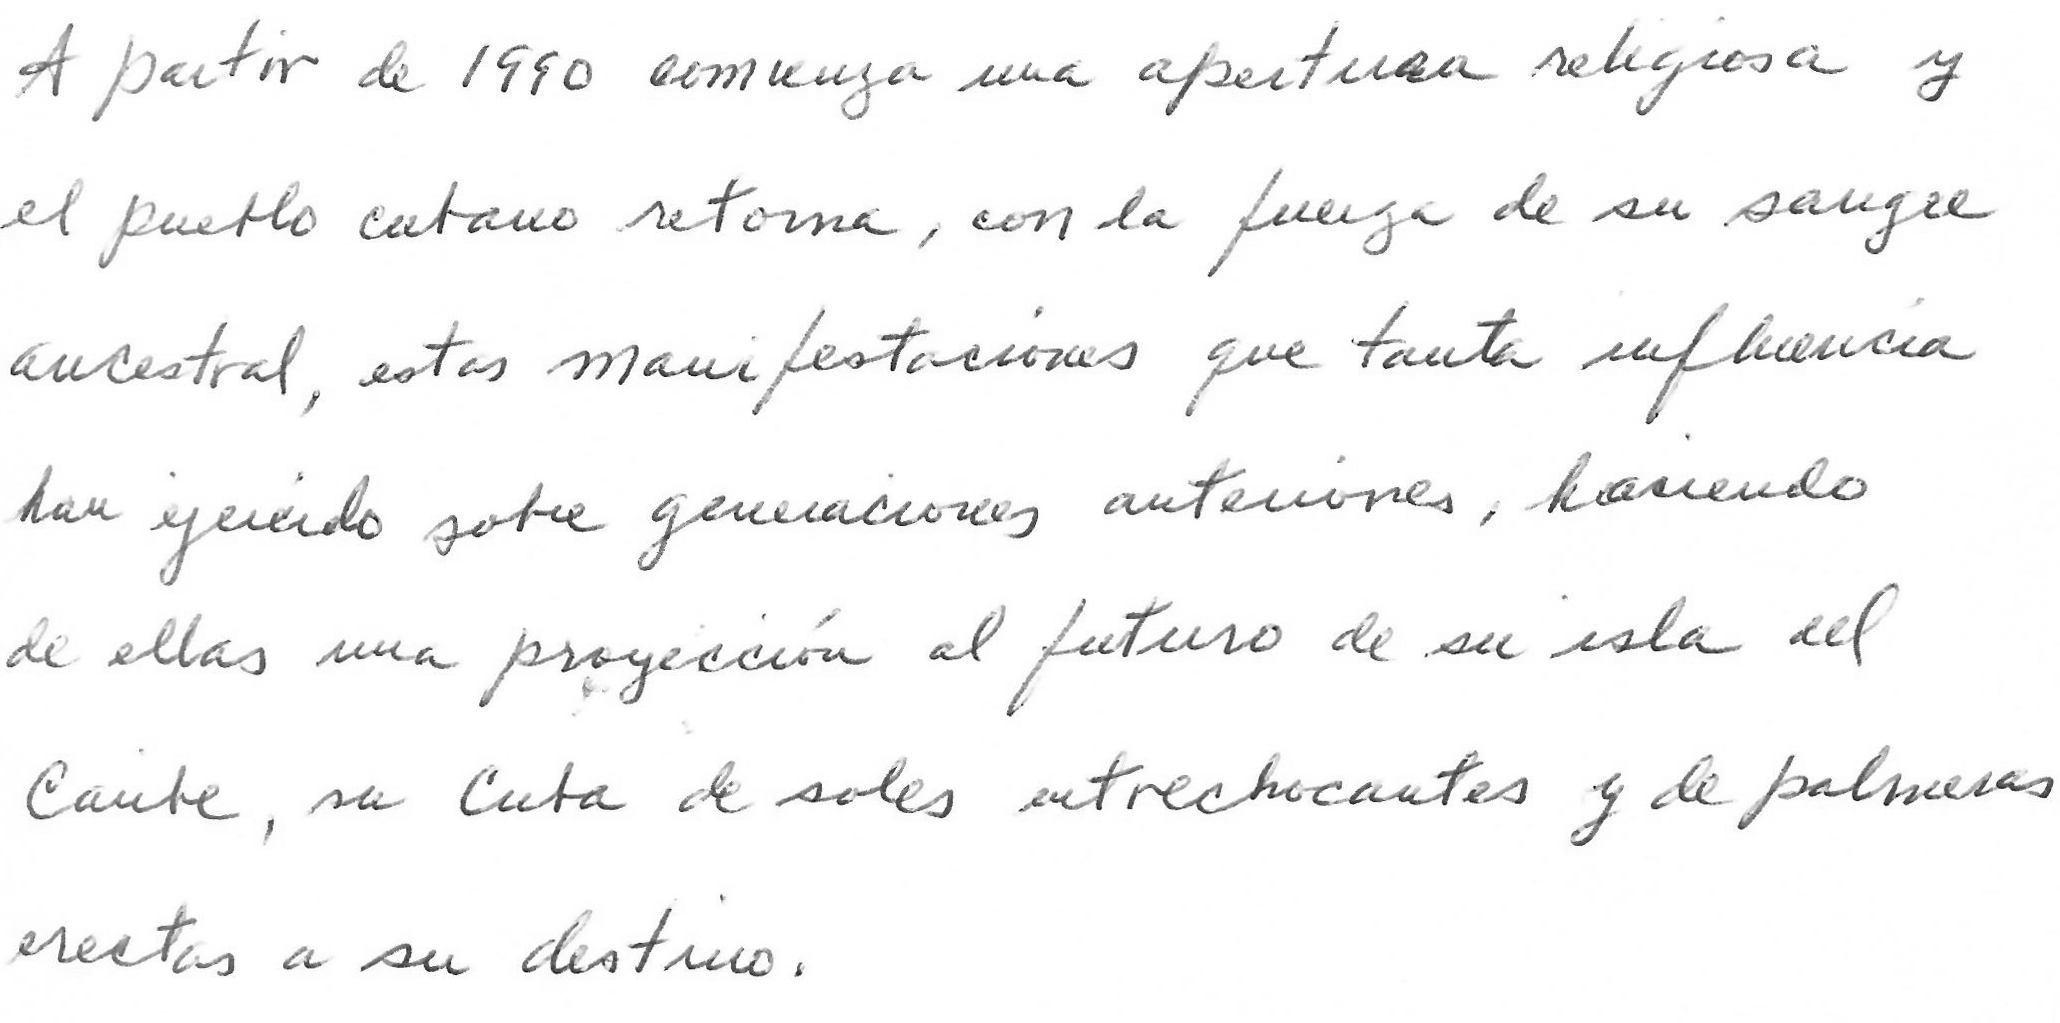 A partir de 1990 comienza una apertura religiosa y
el pueblo cubano retorna, con la fuerza de su sangre
ancestral, estas manifestaciones que tanta influencia
han ejercido sobre generaciones anteriores, haciendo
de ellas una proyección al futuro de su isla del
Caribe, su Cuba de soles entrechocantes y de palmeras
erectas a su destino.